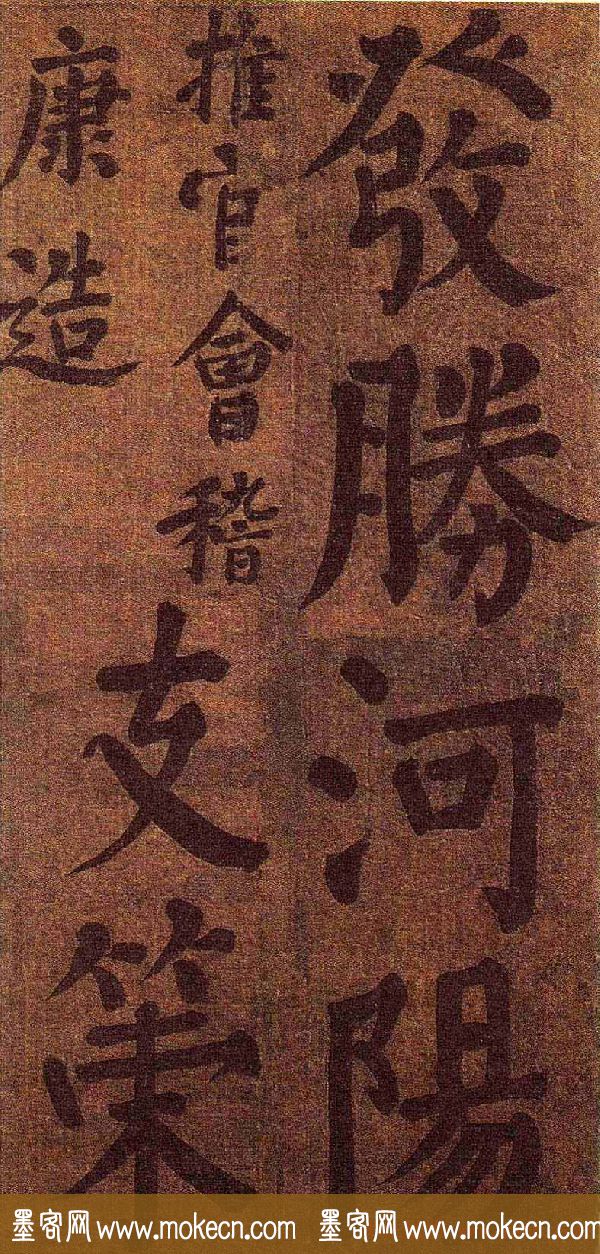 發勝河陽
推官會稽
康造
支策
墨客网 www.mokecn.com 墨客网 www.mokecn.com